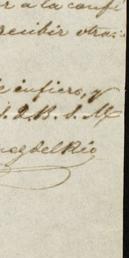 r a la confi
recibir otra
e infiero, y
S. Q. B. S. M
ez del Rio